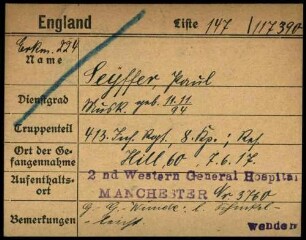 England Liste 147 /117390
Erkm. 224
Name Seyffer, Paul
Dienstgrad Musk. geb. 11.11.94
Truppenteil 413. Inf. Regt. 8. Kp.; Ref.
Ort der Gefangennahme Hill 60 7.6.17
Aufenthaltsort 2nd Western General Hospital MANCHESTER Nr. 3760
Bemerkungen G. G.
wenden